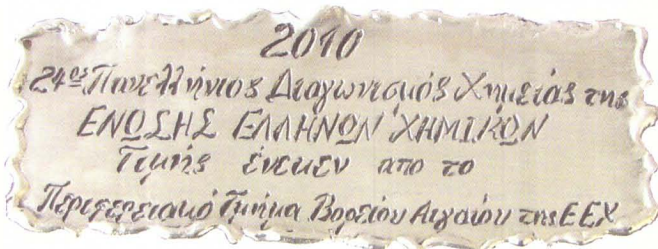 2010
24ος Πανελλήνιος Διαγωνισμός Χημείας της
ΕΝΩΣΗΣ ΕΛΛΗΝΩΝ ΧΗΜΙΚΩΝ
Τιμής ένεκεν απο το
Περιφερειακό Τμήμα Βορείου Αιγαίου της ΕΕΧ